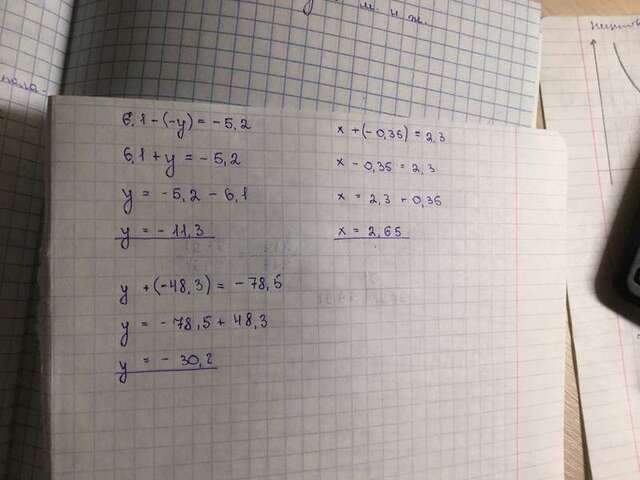 м. н ж.
6,1 - (-y) = -5,2
6,1 + y = -5,2
y = -5,2 - 6,1
y = -11,3
y + (-48,3) = -78,5
y = -78,5 + 48,3
y = -30,2
x + (-0,35) = 2,3
x - 0,35 = 2,3
x = 2,3 + 0,35
x = 2,65